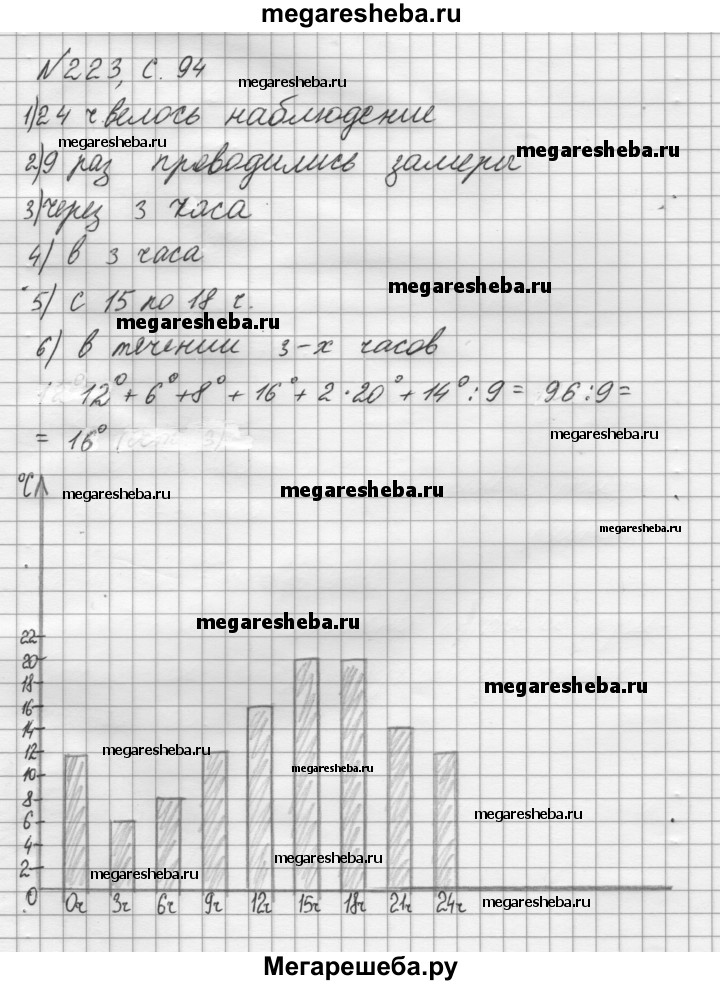 megaresheba.ru
№223, с. 94
megaresheba.ru
1) 24 ч велось наблюдение
megaresheba.ru
megaresheba.ru
2) 9 раз проводились замеры
3) через 3 часа
4) в 3 часа
megaresheba.ru
5) с 15 по 18 ч.
megaresheba.ru
6) в течении 3-х часов
12° + 6° + 8° + 16° + 2·20° + 14° : 9 = 96 : 9 =
megaresheba.ru
= 16°
°С
megaresheba.ru
megaresheba.ru
megaresheba.ru
megaresheba.ru
22
20
18
megaresheba.ru
16
14
12
megaresheba.ru
megaresheba.ru
10
8
megaresheba.ru
6
4
megaresheba.ru
2
megaresheba.ru
0 0ч 3ч 6ч 9ч 12ч 15ч 18ч 21ч 24ч
megaresheba.ru
Мегарешеба.ру